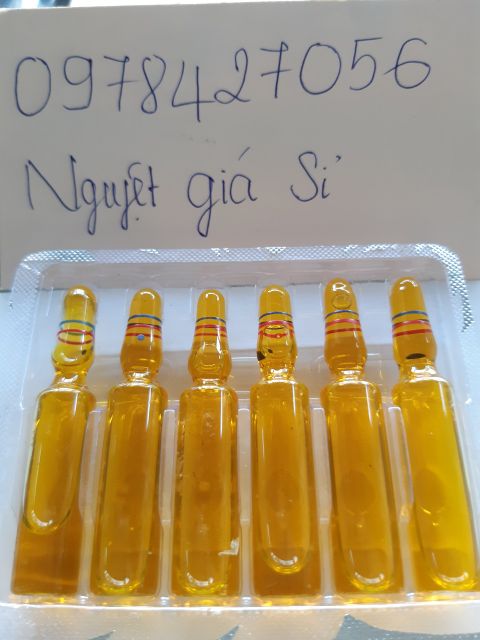 0978427056
Nguyệt giá Sỉ